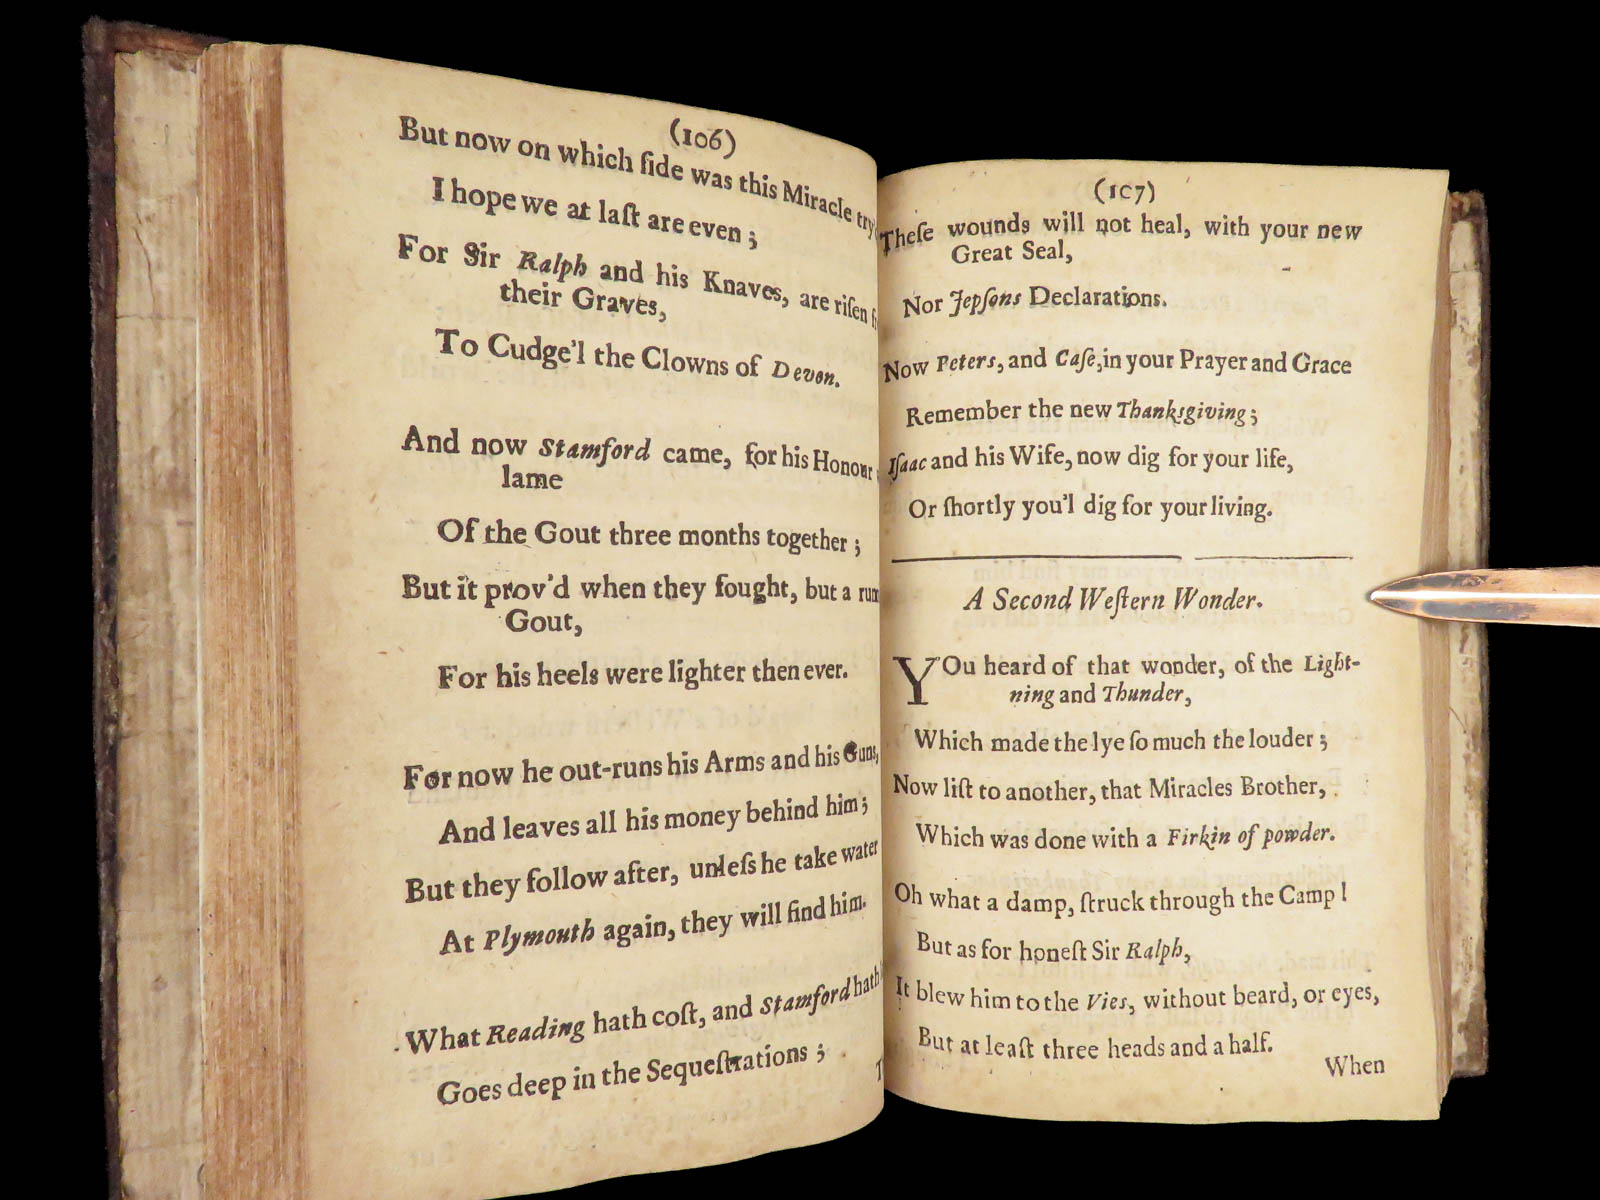 (106)
But now on which ſide was this Miracle try'
I hope we at laſt are even ;
For Sir Ralph and his Knaves, are riſen
their Graves,
To Cudge'l the Clowns of Devon.
And now Stamford came, for his Honour
lame
Of the Gout three months together ;
But it prov'd when they fought, but a
Gout,
For his heels were lighter then ever.
For now he out-runs his Arms and his Guns,
And leaves all his money behind him ;
But they follow after, unleſs he take water
At Plymouth again, they will find him.
What Reading hath coſt, and Stamford hath
Goes deep in the Sequeſtrations ;
(107)
Theſe wounds will not heal, with your new
Great Seal,
Nor Jepſons Declarations.
Now Peters, and Caſe, in your Prayer and Grace
Remember the new Thanksgiving ;
Iſaac and his Wife, now dig for your life,
Or ſhortly you'l dig for your living.
A Second Weſtern Wonder.
YOu heard of that wonder, of the Light-
ning and Thunder,
Which made the lye ſo much the louder ;
Now liſt to another, that Miracles Brother,
Which was done with a Firkin of powder.
Oh what a damp, ſtruck through the Camp !
But as for honeſt Sir Ralph,
It blew him to the Vies, without beard, or eyes,
But at leaſt three heads and a half.
When